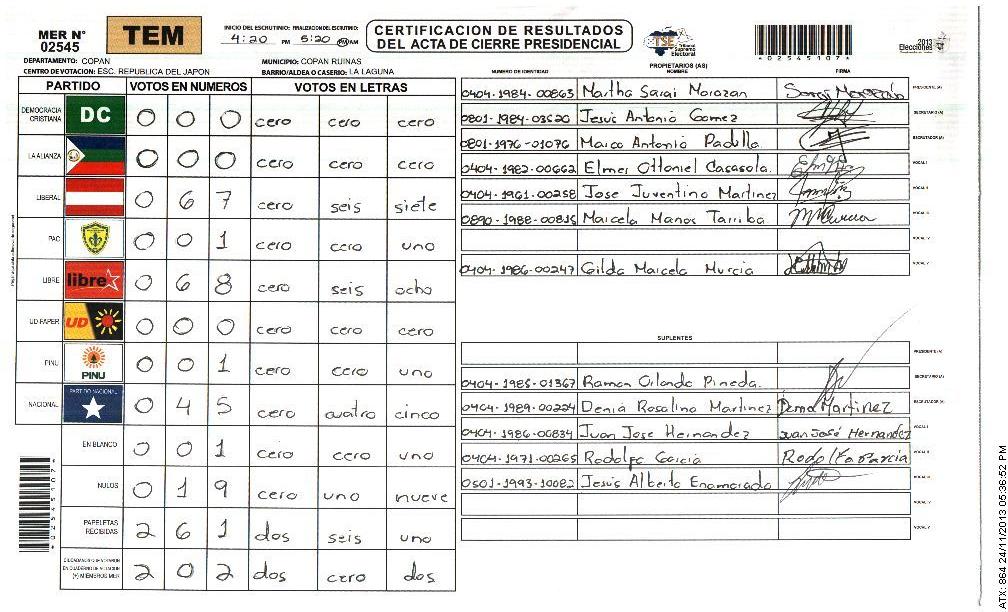 MER N° 02545
TEM
INICIO DEL ESCRUTINIO: FINALIZACION DEL ESCRUTINIO:
4:20 PM 5:20 PM AM
CERTIFICACION DE RESULTADOS
DEL ACTA DE CIERRE PRESIDENCIAL
TSE Tribunal Supremo Electoral
02545107
2013
Elecciones
DEPARTAMENTO: COPAN MUNICIPIO: COPAN RUINAS
CENTRO DE VOTACION: ESC. REPUBLICA DEL JAPON BARRIO/ALDEA O CASERIO: LA LAGUNA
PARTIDO VOTOS EN NUMEROS VOTOS EN LETRAS
DEMOCRACIA CRISTIANA DC 0 0 0 cero cero cero
LA ALIANZA 0 0 0 cero cero cero
LIBERAL 0 6 7 cero seis siete
PAC 0 0 1 cero cero uno
LIBRE libre 0 6 8 cero seis ocho
UD FAPER UD 0 0 0 cero cero cero
PINU PINU 0 0 1 cero cero uno
NACIONAL PARTIDO NACIONAL 0 4 5 cero cuatro cinco
EN BLANCO 0 0 1 cero cero uno
NULOS 0 1 9 cero uno nueve
PAPELETAS RECIBIDAS 2 6 1 dos seis uno
CIUDADANOS QUE VOTARON EN CUADERNO DE VOTACION (+) MIEMBROS MER 2 0 2 dos cero dos
PROPIETARIOS (AS)
NUMERO DE IDENTIDAD NOMBRE FIRMA
0404-1984-00863 Martha Sarai Morazan PRESIDENTE (A)
0801-1984-03520 Jesus Antonio Gomez SECRETARIO (A)
0801-1976-01076 Marco Antonio Padilla ESCRUTADOR (A)
0404-1982-00662 Elmer Ottoniel Casasola. VOCAL I
0404-1961-00258 Jose Juventino Martinez VOCAL II
0890-1988-00815 Marcela Manos Tarriba VOCAL III
VOCAL IV
0404-1986-00247 Gilda Marcela Murcia VOCAL V
SUPLENTES
PRESIDENTE (A)
0404-1985-01367 Ramon Orlando Pineda. SECRETARIO (A)
0404-1989-00224 Denia Rosalina Martinez Denia Martinez ESCRUTADOR (A)
0404-1986-00834 Juan Jose Hernandez Juan José Hernandez VOCAL I
0404-1971-00265 Rodolfo Garcia Rodolfo Garcia VOCAL II
0501-1993-10082 Jesus Alberto Enamorado VOCAL III
VOCAL IV
VOCAL V
02545107
ATX: 864 24/11/2013 05:36:52 PM